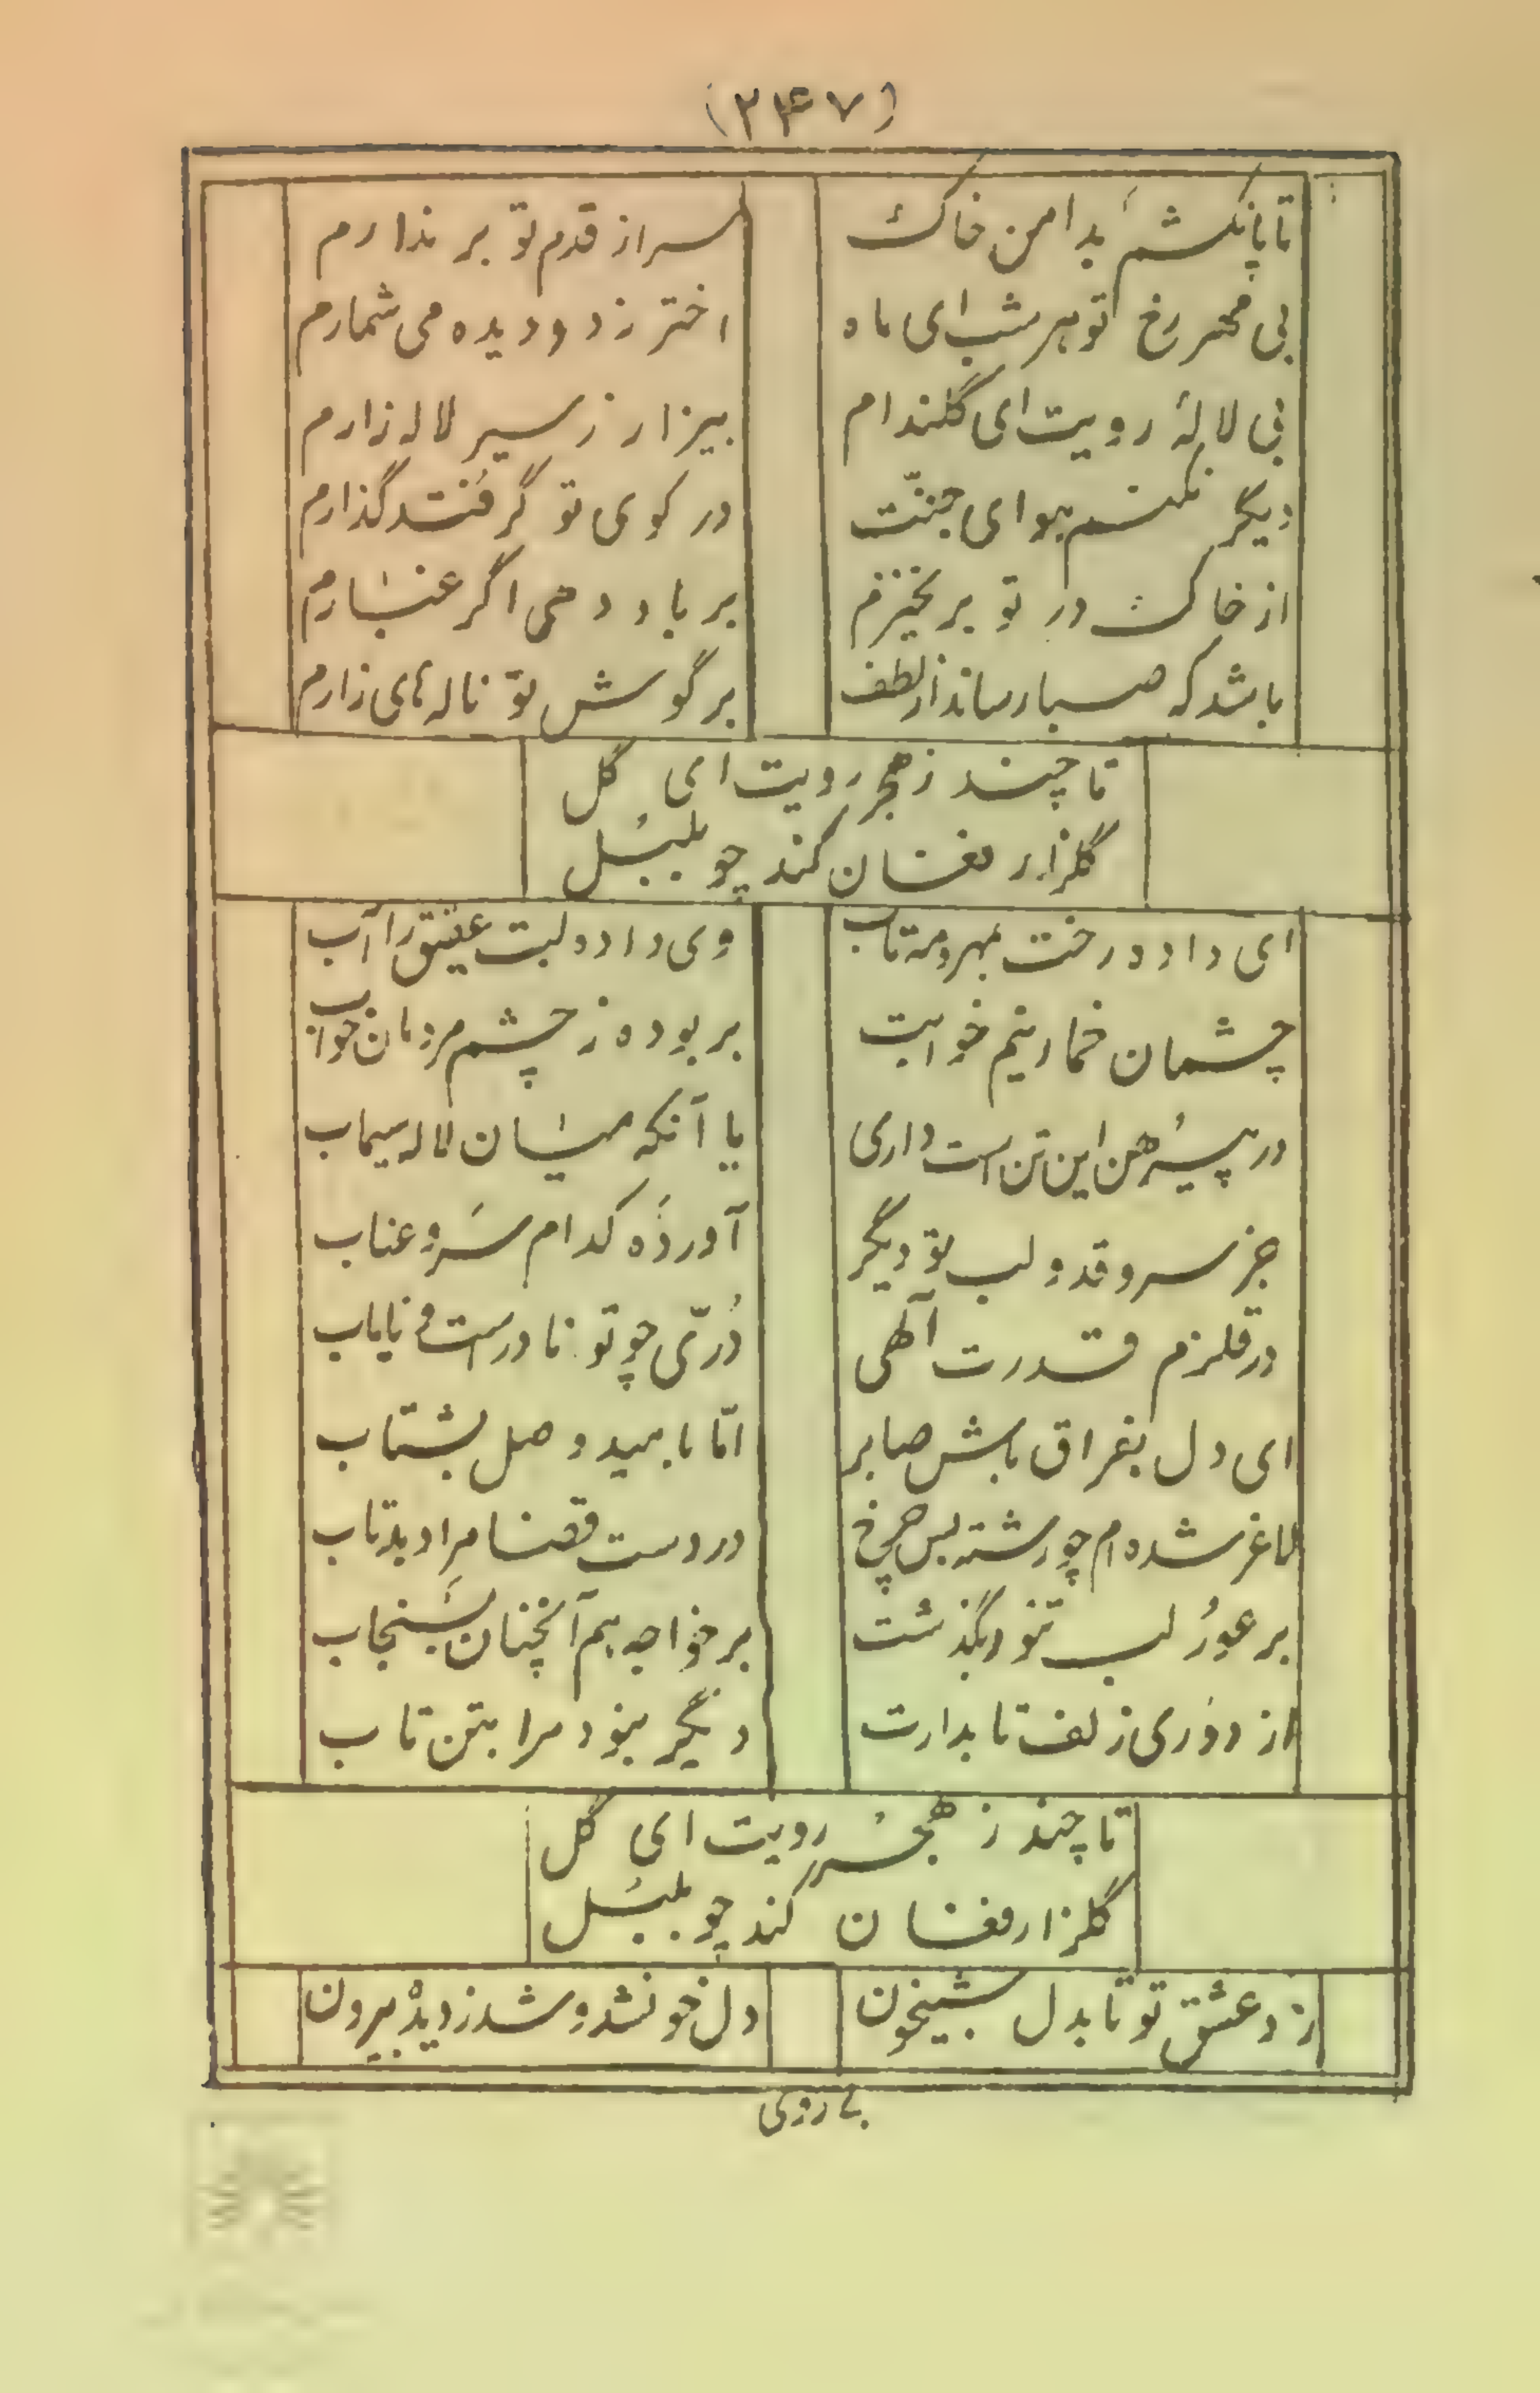 (۲۴۷)
تا پا نکشم بدامن خاک سر از قدم تو بر ندارم
بی مهر رخ تو هر شب ای ماه اختر ز دو دیده می شمارم
بی لالهٔ رویت ای گلندام بیزار ز سیر لاله زارم
دیگر نکنم هوای جنّت در کوی تو گر فتد گذارم
از خاک در تو بر نخیزم بر باد دهی اگر غبارم
باشد که صبا رساند از لطف بر گوش تو ناله‌های زارم
تا چند ز هجر رویت ای گل
گلزار فغان کند چو بلبل
ای داده رخت بمهر و مه تاب وی داده لبت عقیق را آب
چشمان خمار نیم خوابت بربوده ز چشم مردمان خواب
در پیرهن این تن است داری یا آنکه میان لاله سیماب
جز سرو قد و لب تو دیگر آورده کدام سرو عناب
در قلزم قدرت آلهی دُرّی چو تو نادرست و نایاب
ای دل بفراق باش صابر امّا بامید وصل بشتاب
لاغر شده‌ام چو رشته بس چرخ در دست قضا مرا دهد تاب
بر عور لب تنور بگذشت بر خواجه هم آنچنان بسنجاب
از دوری زلف تابدارت دیگر نبود مرا بتن تاب
تا چند ز هجر رویت ای گل
گلزار فغان کند چو بلبل
زد عشق تو تا بدل شبیخون دل خونشد و شد ز دیده بیرون
بی روی